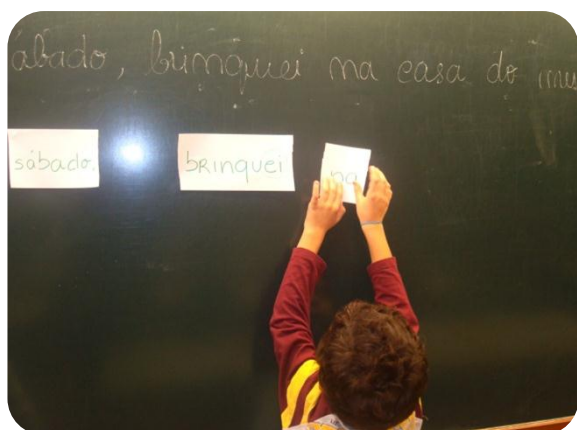 ábado, brinquei na casa do meu
sábado, brinquei na